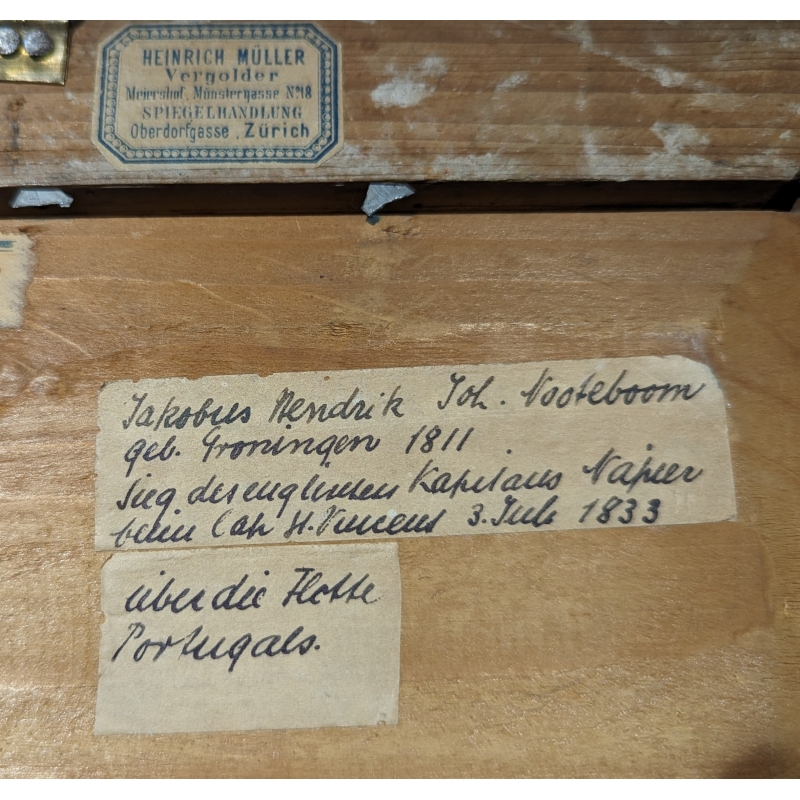 HEINRICH MÜLLER
Vergolder
Meiershof, Münstergasse No 18
SPIEGELHANDLUNG
Oberdorfgasse, Zürich
Jakobus Hendrik Joh. Nooteboom
geb. Groningen 1811
Sieg des englischen Kapitäns Napier
beim Cap St. Vincent 3. Juli 1833
über die Flotte
Portugals.